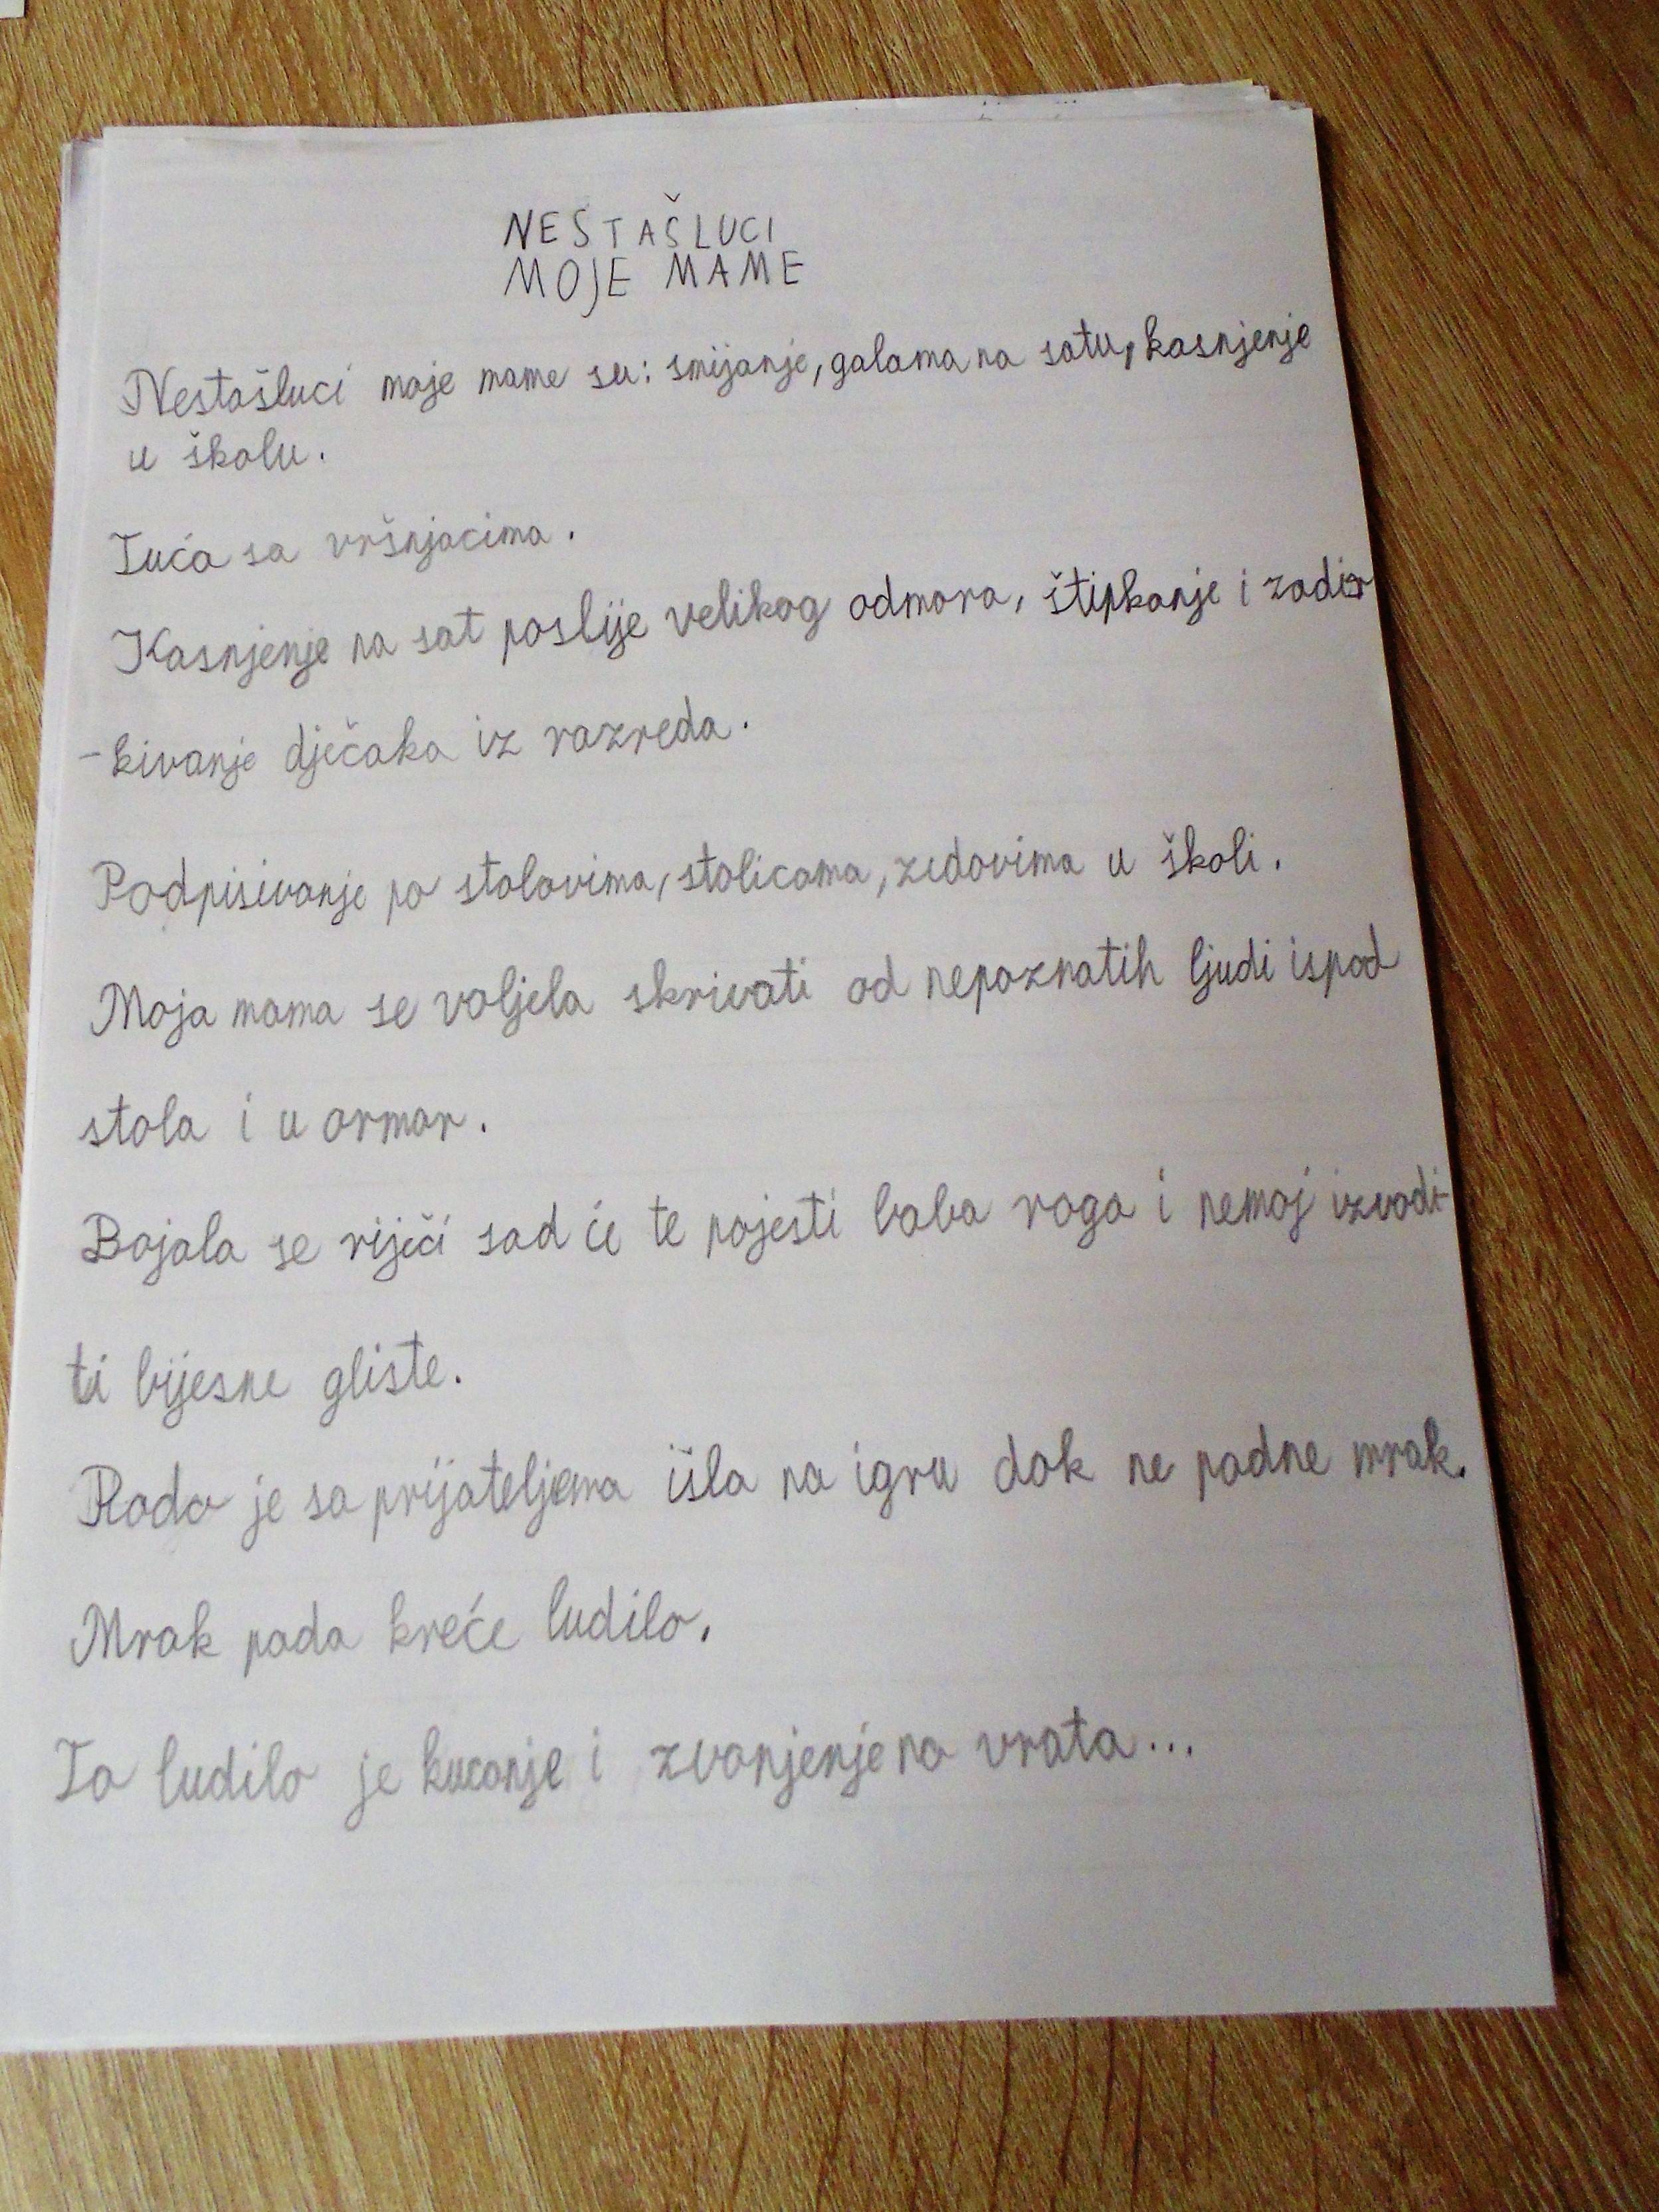 NESTAŠLUCI
MOJE MAME
Nestašluci moje mame su: smijanje, galama na satu, kasnjenje
u školu.
Tuća sa vršnjacima.
Kasnjenje na sat poslije velikog odmora, štipkanje i zadir
-kivanje dječaka iz razreda.
Podpisivanje po stolovima, stolicama, zidovima u školi.
Moja mama se voljela skrivati od nepoznatih ljudi ispod
stola i u ormar.
Bojala se riječi sad će te pojesti baba roga i nemoj izvodi-
ti bijesne gliste.
Rado je sa prijateljema išla na igru dok ne padne mrak.
Mrak pada kreće ludilo.
To ludilo je kucanje i zvanjenje na vrata...